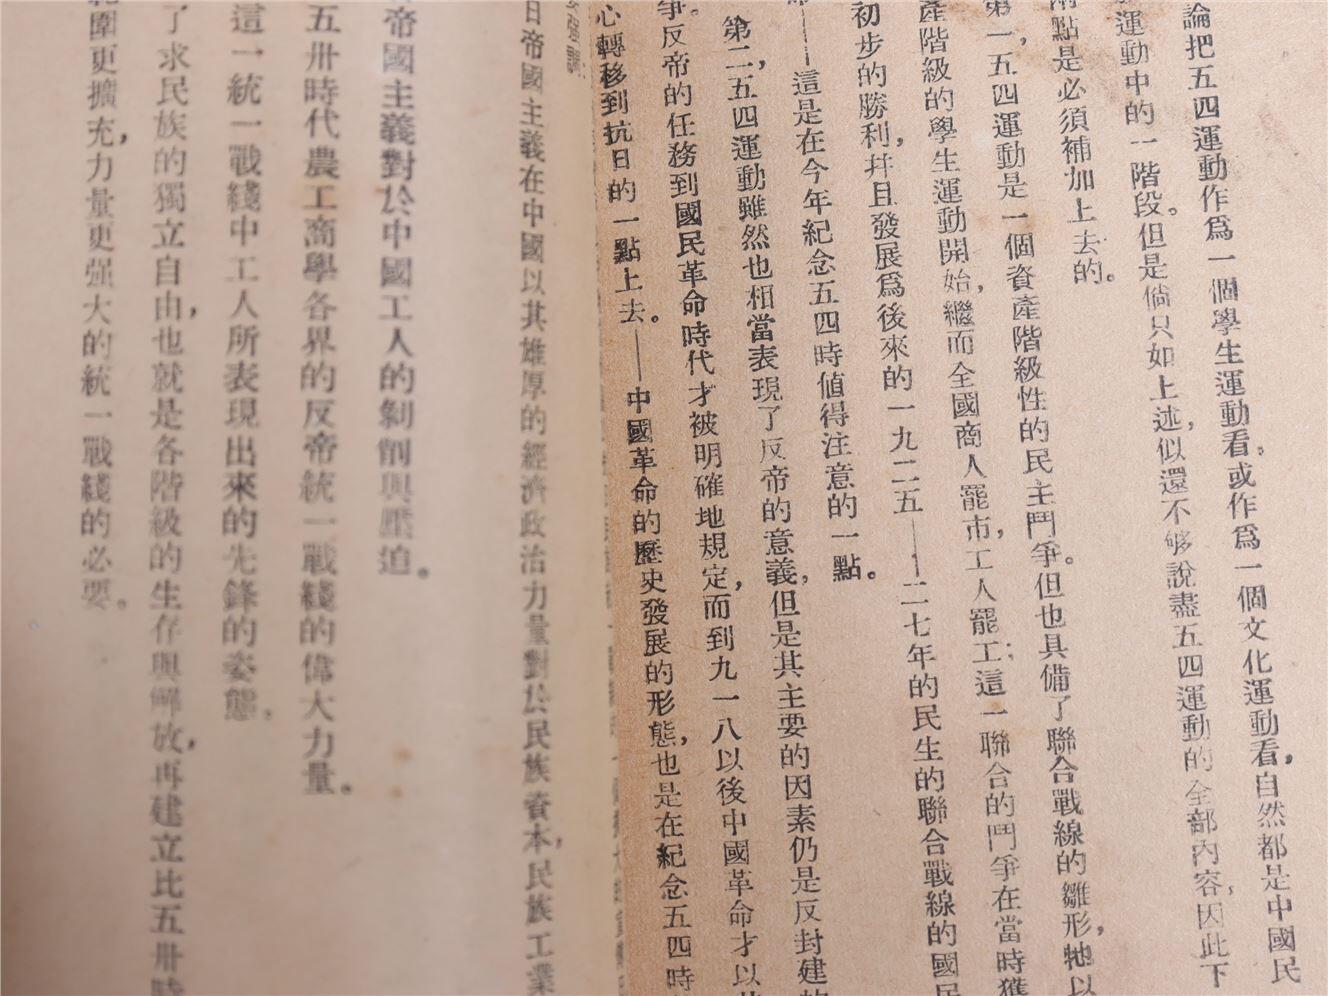 論把五四運動作爲一個學生運動看，或作爲一個文化運動看，自然都是中國民
運動中的一階段。但是倘只如上述，似還不够說盡五四運動的全部內容，因此下
兩點是必須補加上去的。
第一，五四運動是一個資產階級性的民主鬥爭。但也具備了聯合戰線的雛形，牠以
產階級的學生運動開始，繼而全國商人罷市，工人罷工；這一聯合的鬥爭在當時獲
初步的勝利，幷且發展爲後來的一九二五——二七年的民生的聯合戰線的國民
——這是在今年紀念五四時値得注意的一點。
第二，五四運動雖然也相當表現了反帝的意義，但是其主要的因素仍是反封建的
爭。反帝的任務到國民革命時代才被明確地規定，而到九一八以後中國革命才以
心轉移到抗日的一點上去。——中國革命的歷史發展的形態，也是在紀念五四時
强調
日帝國主義在中國以其雄厚的經濟政治力量對於民族資本，民族工業
帝國主義對於中國工人的剝削與壓迫。
五卅時代農工商學各界的反帝統一戰綫的偉大力量。
這一統一戰綫中工人所表現出來的先鋒的姿態。
了求民族的獨立自由，也就是各階級的生存與解放，再建立比五卅時
範圍更擴充，力量更强大的統一戰綫的必要。